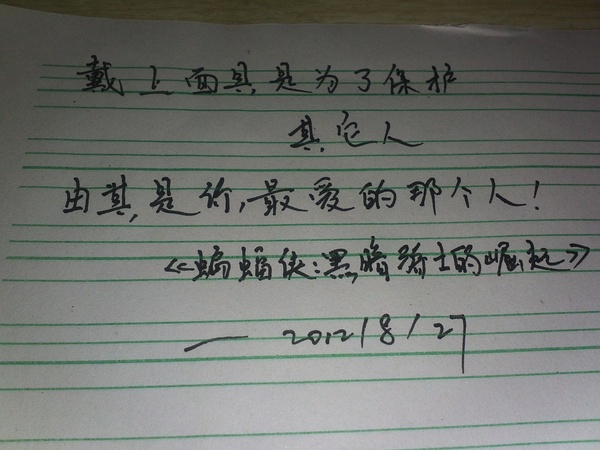 戴上面具是为了保护
其它人
由其是你,最爱的那个人!
《蝙蝠侠:黑暗骑士的崛起》
— 2012/8/27